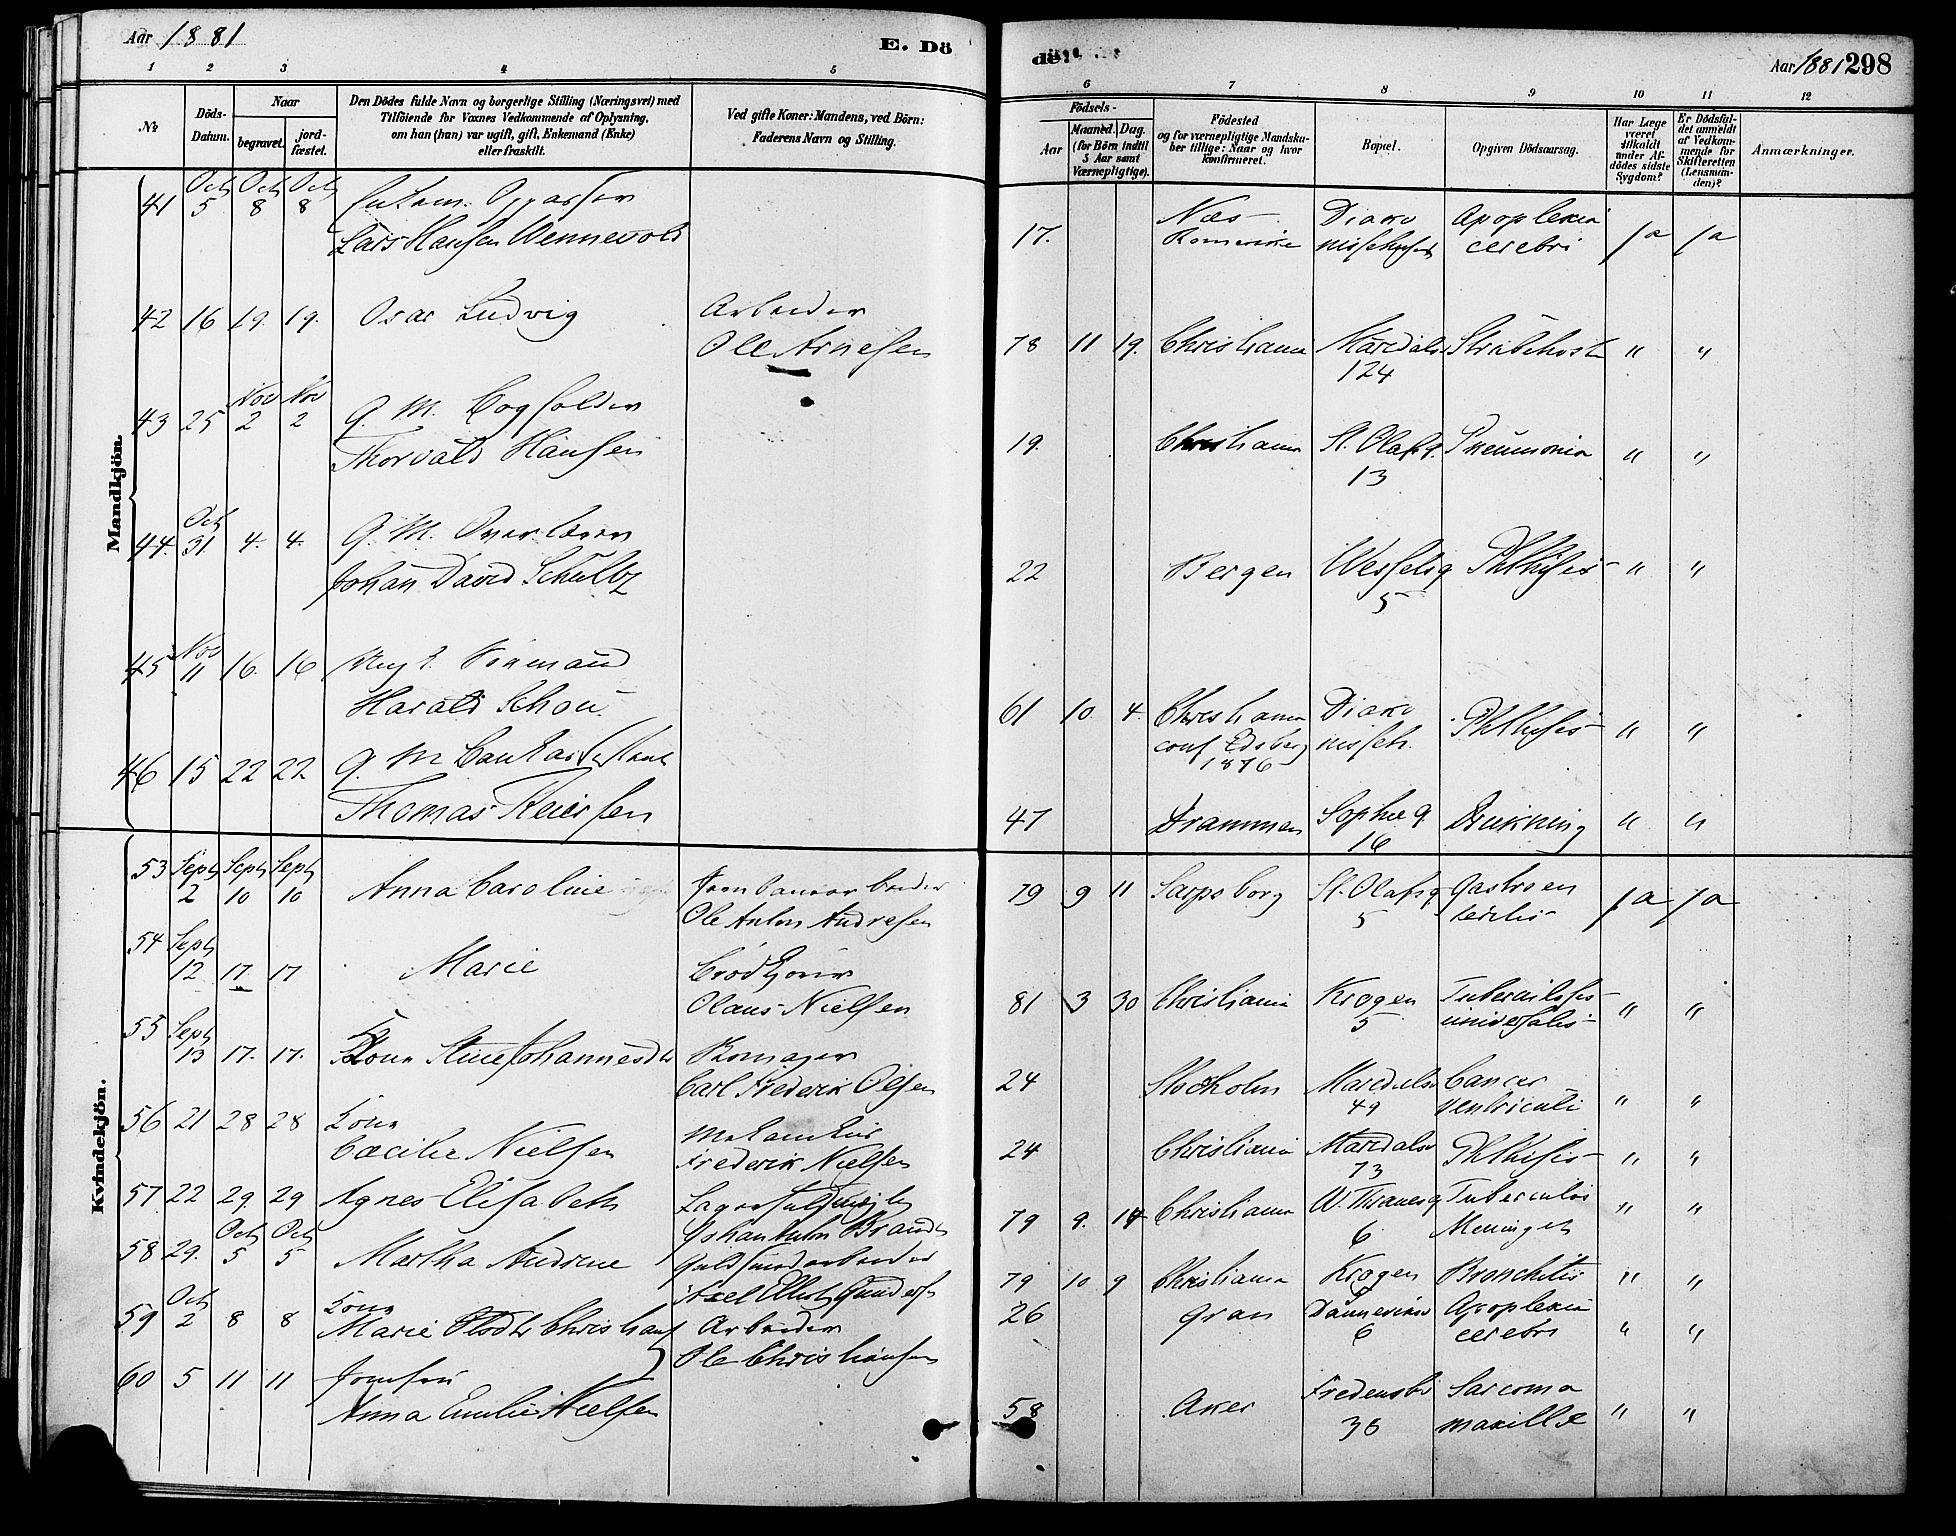 Aar 1881
E. Dö
de.
Aar 1881 298
1 2 3 4 5 6 7 8 9 10 11 12
No
Döds-Datum.
Naar
begravet.
jordfæstet.
Den Dödes fulde Navn og borgerlige Stilling (Næringsvei) med
Tilföiende for Voxnes Vedkommende af Oplysning,
om han (hun) var ugift, gift, Enkemand (Enke)
eller fraskilt.
Ved gifte Koner: Mandens, ved Börn:
Faderens Navn og Stilling.
Födsels-
Aar
Maaned. Dag.
(for Börn indtil
5 Aar samt
Værnepligtige).
Födested
og for værnepligtige Mandskaber tillige: Naar og hvor
konfirmeret.
Bopæl.
Opgiven Dödsaarsag.
Har Læge
været
tilkaldt
under Afdödes sidste
Sygdom?
Er Dödsfaldet anmeldt
af Vedkommende for
Skifteretten
(Lensmanden)?
Anmærkninger.
Mandkjön.
41 Oct 5 Oct 8 Oct 8
Lars Hansen Wennevold
17. Næs Romerike Diakonissehuset Apoplexia cerebri ja ja
42 16 19. 19. Osar Ludvig Arbeider
Ole Arnesen
78 11 19. Christiania Maridalsv 124 Strubehoste " "
43 25 Nov 2 Nov 2 G. M.
Thorvald Hansen
19. Christiania St. Olafsg. 13 Pneumonia " "
44. Oct 31 4. 4. G. M.
Johan David Schultz
22 Bergen Wesselsg 5 Phthisis " "
45 Nov 11 16. 16
Harald Schou
61 10 4. Christiania conf Edsberg 1876 Diakonisseh. Phthisis " "
46 15 22 22 G. M.
Thomas
47 Drammen Sophieg. 16 Drukning " "
Kvindekjön.
53 Sept 2 Sept 10 Sept 10 Anna Caroline Jernbanearbeider
Ole Anton Andresen
79 9 11 Sarpsborg St. Olafsg 5 Gastroenteritis ja ja
54 Sept 12 17 17 Marie
Olaus Nielsen
81 3 30 Christiania Krogen 5 Tuberculosis universalis " "
55 Sept 13 17. 17. Kona Stine Johannesdtr
Carl Frederik Olsen
24 Stockholm Maridalsv 49 Cancer ventriculi " "
56 21 28 28 Kona
Cæcilie Nielsen
Frederik Nielsen
24 Christiania Maridalsv 73 Phthisis " "
57 22 29. 29 Agnes Elisabeth
Johan Anton Brandt
79 9. 14 Christiania W. Thranesg 6 Tuberculos Meningit " "
58 29. Oct 5 Oct 5 Martha Andrine Guldsmedarbeider
79 10 9 Christiania Krogen Bronchitis " "
59 Oct 2 8 8 Kona
Marie Christians Arbeider
Ole Christiansen
26 Gran Dannevirksv 6 Apoplexia cerebri " "
60 5 11 11 Jomfru
Anna Emilie Nielsen
58 Aker Fredensb 38 Sarcoma maxillæ " "